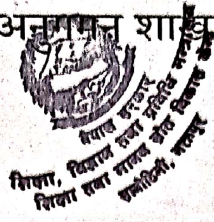 अनुगमन शाखा
नेपाल सरकार
शिक्षा, विज्ञान तथा प्रविधि मन्त्रालय
शिक्षा तथा मानव स्रोत विकास केन्द्र
सानोठिमी, भक्तपुर